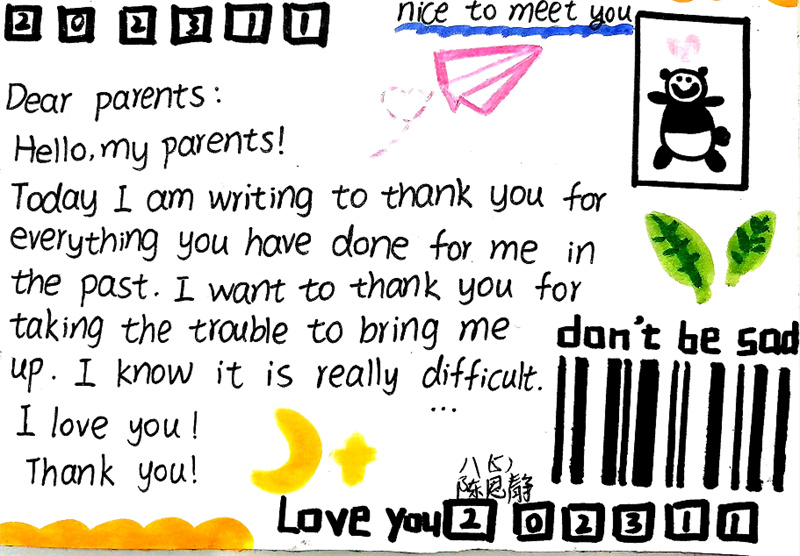 2 0 2 3 1 1
nice to meet you
Dear parents:
Hello, my parents!
Today I am writing to thank you for
everything you have done for me in
the past. I want to thank you for
taking the trouble to bring me
up. I know it is really difficult.
...
I love you!
Thank you!
don't be sad
八(5)
陈恩静
Love you 2 0 2 3 1 1